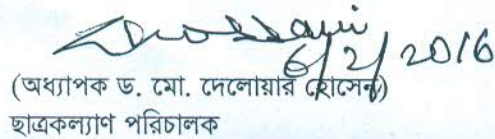 6/2/2016
(অধ্যাপক ড. মো. দেলোয়ার হোসেন)
ছাত্রকল্যাণ পরিচালক